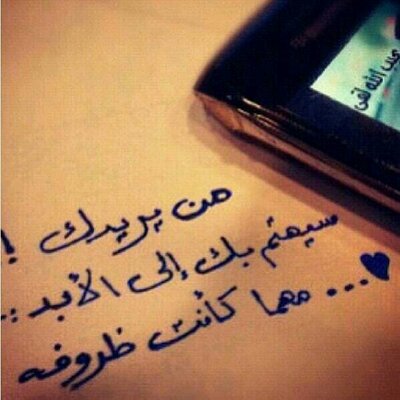 من يريدك !
سيهتم بك إلى الأبد ..
♥... مهما كانت ظروفه